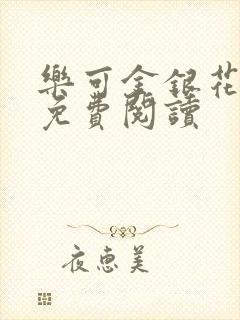 樂可金銀花
免費閱讀
夜惠美